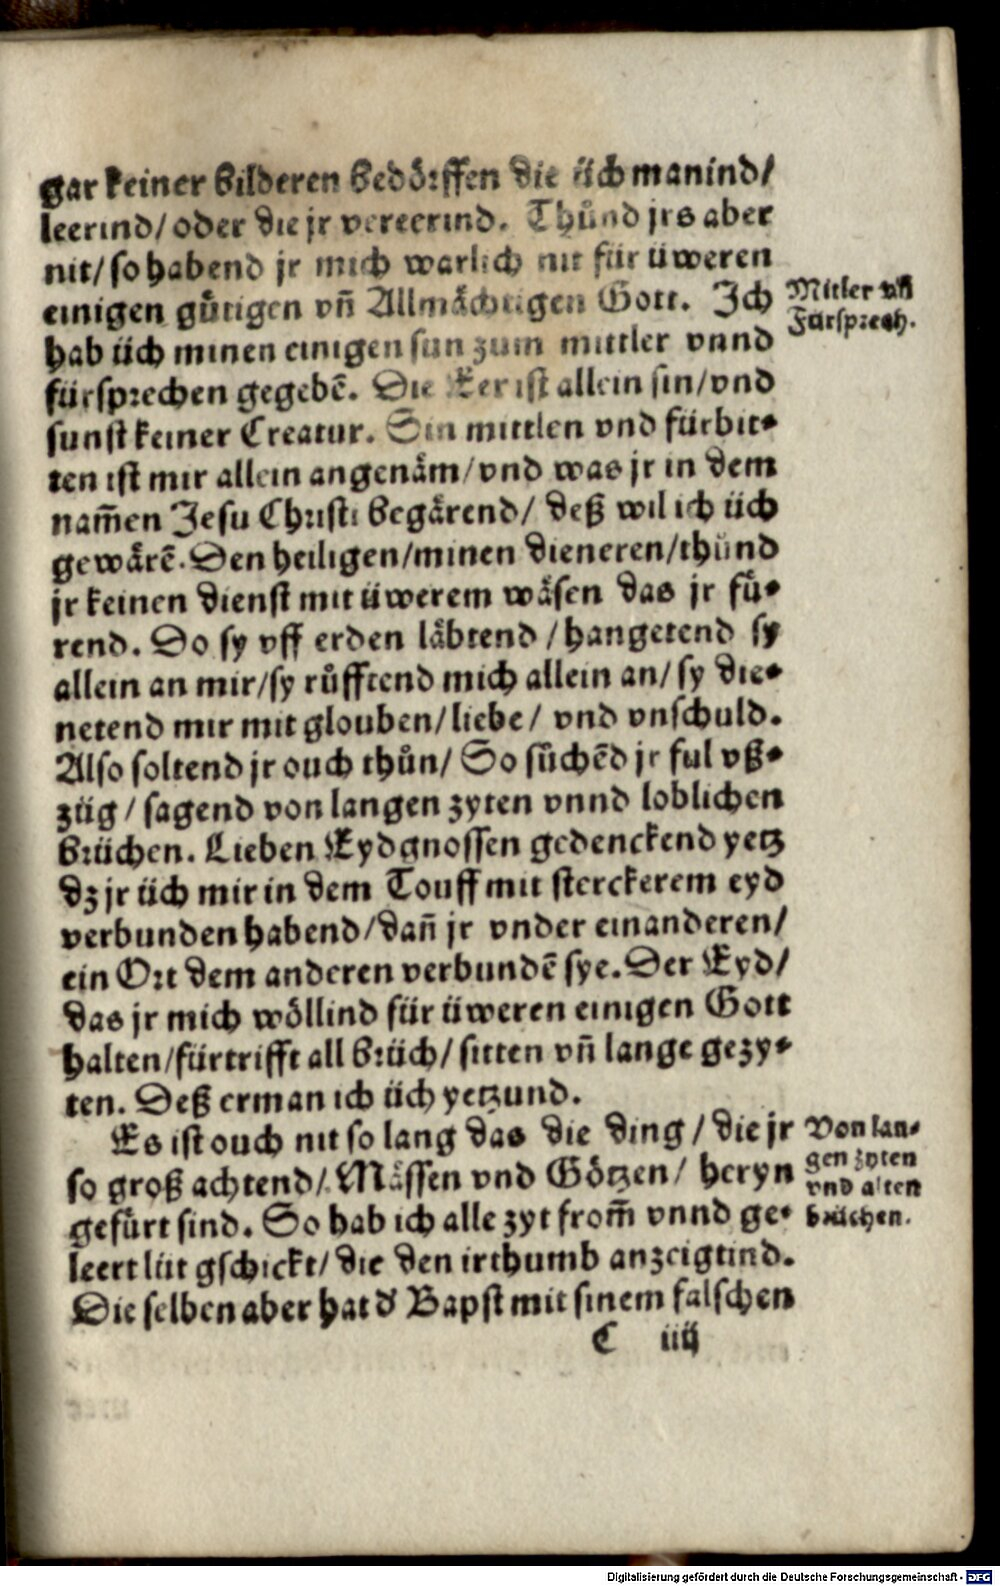 gar keiner bilderen bedörffen die üch manind/
leerind/ oder die jr vereerind. Thůnd jrs aber
nit/ so habend jr mich warlich nit für üweren
einigen gůtigen vñ Allmåchtigen Gott. Ich
Mitler vñ
Fürsprech.
hab üch minen einigen sun zum mittler vnnd
fürsprechen gegebē. Die Eer ist allein sin/ vnd
sunst keiner Creatur. Sin mittlen vnd fürbit⸗
ten ist mir allein angenåm/ vnd was jr in dem
nam̄en Jesu Christi begårend/ deß wil ich üch
gewårē. Den heiligen/ minen dieneren/ thůnd
jr keinen dienst mit üwerem wåsen das jr fů⸗
rend. Do sy vff erden låbtend / hangetend sy
allein an mir/ sy růfftend mich allein an/ sy die⸗
netend mir mit glouben/ liebe/ vnd vnschuld.
Also soltend jr ouch thůn/ So sůchēd jr ful vß⸗
züg / sagend von langen zyten vnnd loblichen
brüchen. Lieben Eydgnossen gedenckend yetz
dz jr üch mir in dem Touff mit sterckerem eyd
verbunden habend/ dañ jr vnder einanderen/
ein Ort dem anderen verbundē sye. Der Eyd/
das jr mich wöllind für üweren einigen Gott
halten/ fürtrifft all brüch/ sitten vñ lange gezy⸗
ten. Deß erman ich üch yetzund.
Es ist ouch nit so lang das die ding / die jr
Von lan⸗
gen zyten
vnd alten
brüchen.
so groß achtend/ Måssen vnd Götzen/ heryn
gefürt sind. So hab ich alle zyt from̄ vnnd ge⸗
leert lüt gschickt/ die den irthumb anzeigtind.
Die selben aber hat d' Bapst mit sinem falschen
C iiij
Digitalisierung gefördert durch die Deutsche Forschungsgemeinschaft - DFG